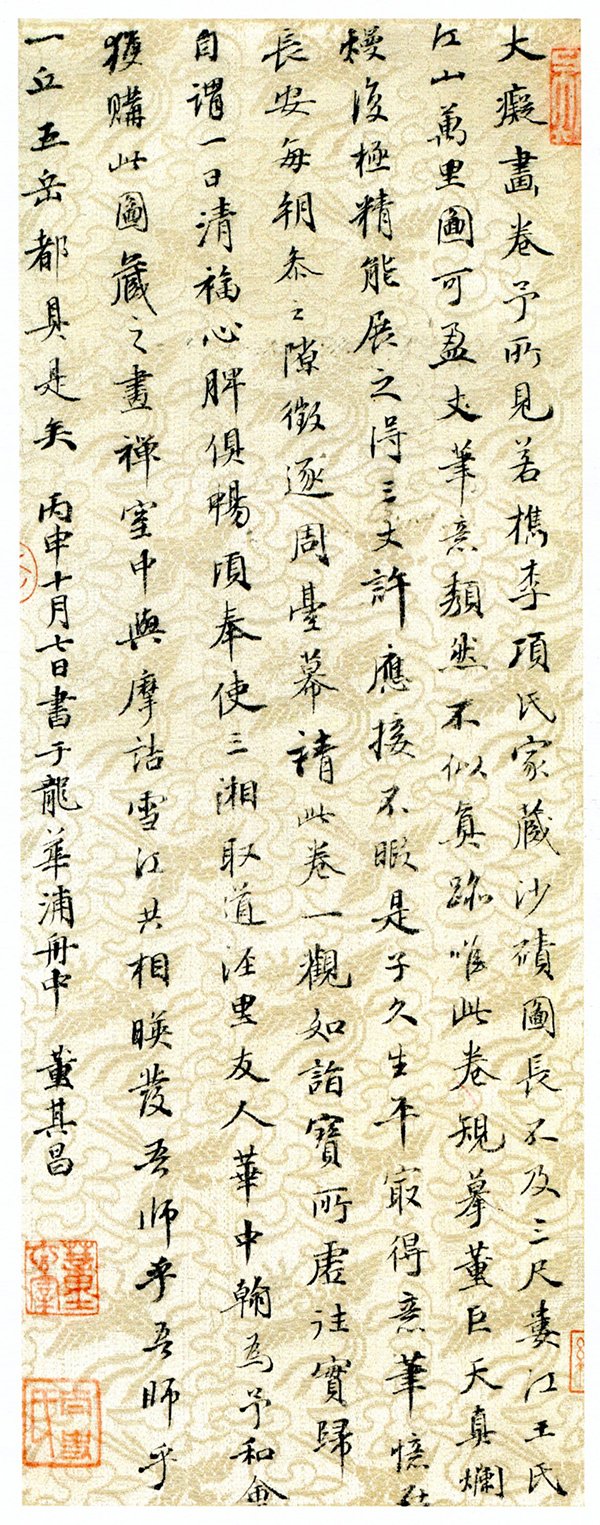 大癡畫卷予所見若檇李項氏家藏沙磧圖長不及三尺婁江王氏
江山萬里圖可盈丈筆意頹然不似真跡唯此卷規摹董巨天真爛
熳復極精能展之得三丈許應接不暇是子久生平㝡得意筆憶在
長安每朝參之隙徵逐周臺幕請此卷一觀如詣寶所虛往實歸
自謂一日清福心脾俱暢頃奉使三湘取道涇里友人華中翰為予和會
獲購此圖藏之畫禪室中與摩詰雪江共相暎發吾師乎吾師乎
一丘五岳都具是矣 丙申十月七日書于龍華浦舟中 董其昌